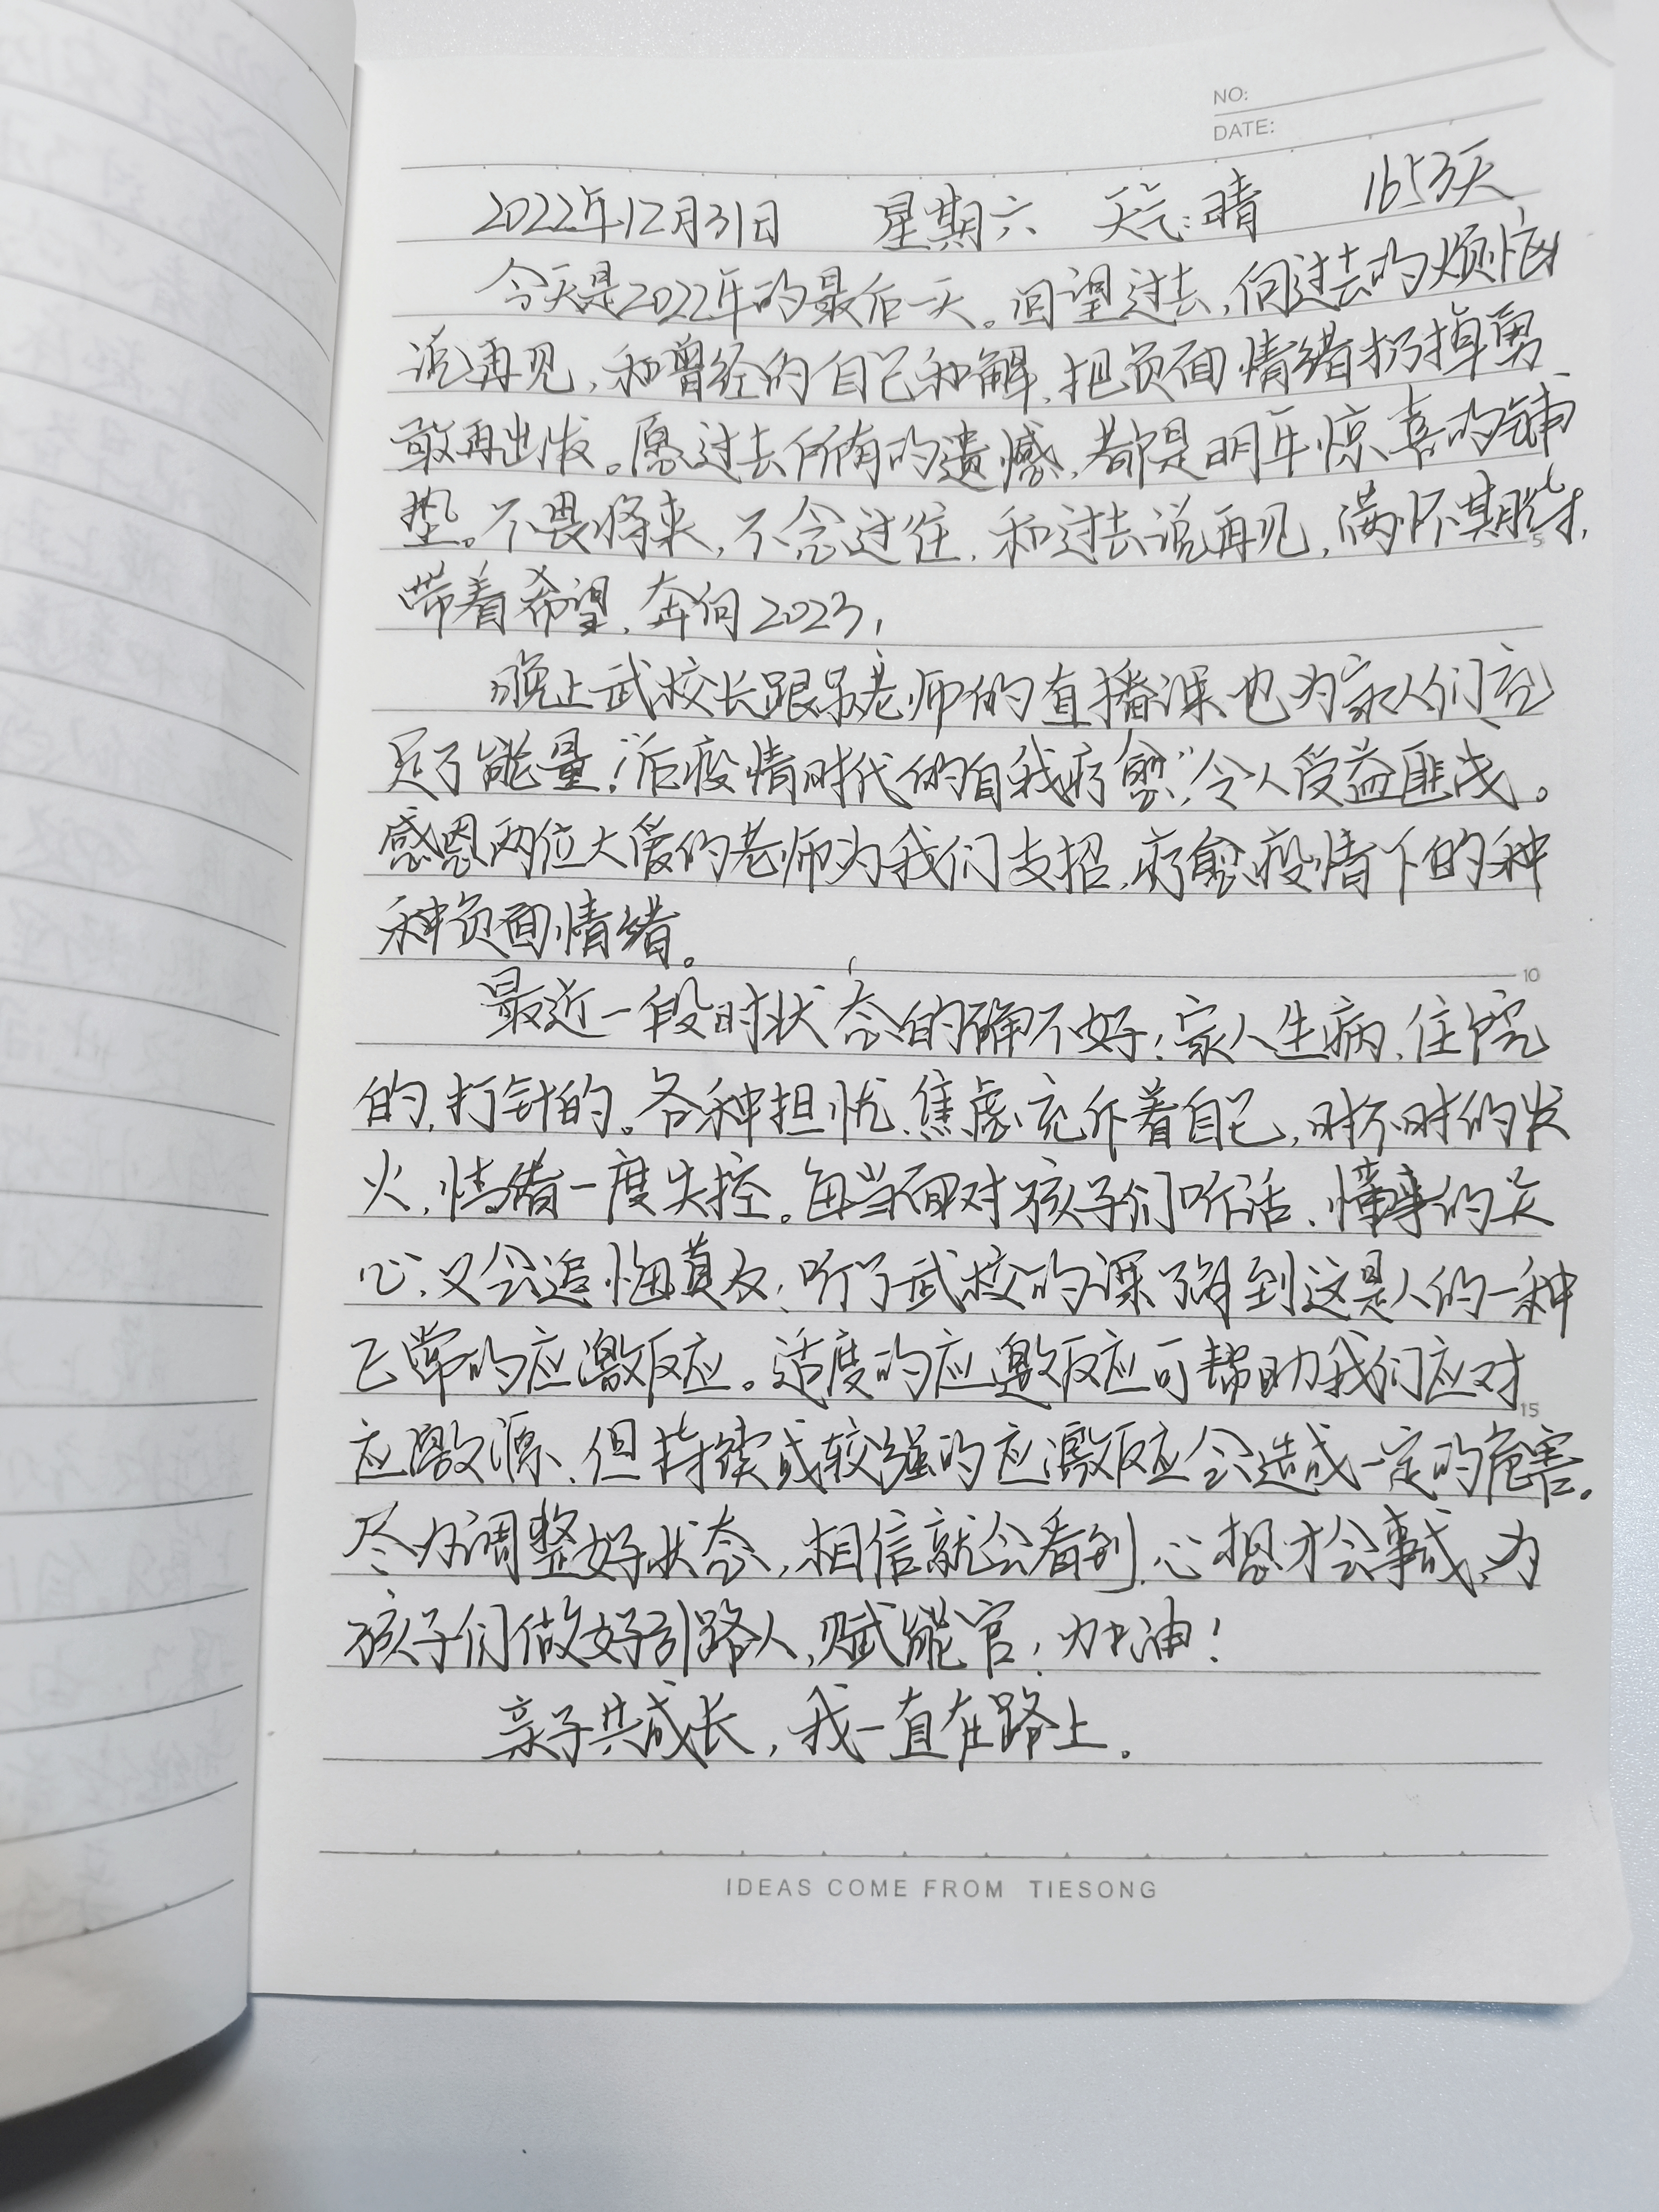 NO:
DATE:
2022年12月31日 星期六 天气:晴 1653天
今天是2022年的最后一天。回望过去,向过去的烦恼
说再见,和曾经的自己和解,把负面情绪扔掉勇
敢再出发。愿过去所有的遗憾,都是明年惊喜的铺
垫。不畏将来,不念过往,和过去说再见,满怀期待,
带着希望,奔向2023,
晚上武校长跟吴老师的直播课也为家人们充
足了能量!“后疫情时代的自我疗愈”,令人受益匪浅。
感恩两位大爱的老师为我们支招,疗愈疫情下的种
种负面情绪。
最近一段时状态的确不好;家人生病、住院
的,打针的。各种担忧、焦虑充斥着自己,时不时的发
火,情绪一度失控。每当面对孩子们听话、懂事的关
心,又会追悔莫及;听了武校的课了解到这是人的一种
正常的应激反应。适度的应激反应可帮助我们应对
应激源、但持续或较强的应激反应会造成一定的危害。
尽力调整好状态,相信就会看到,心想才会事成,为
孩子们做好引路人,赋能官,加油!
亲子共成长,我一直在路上.
5
10
15
IDEAS COME FROM TIESONG